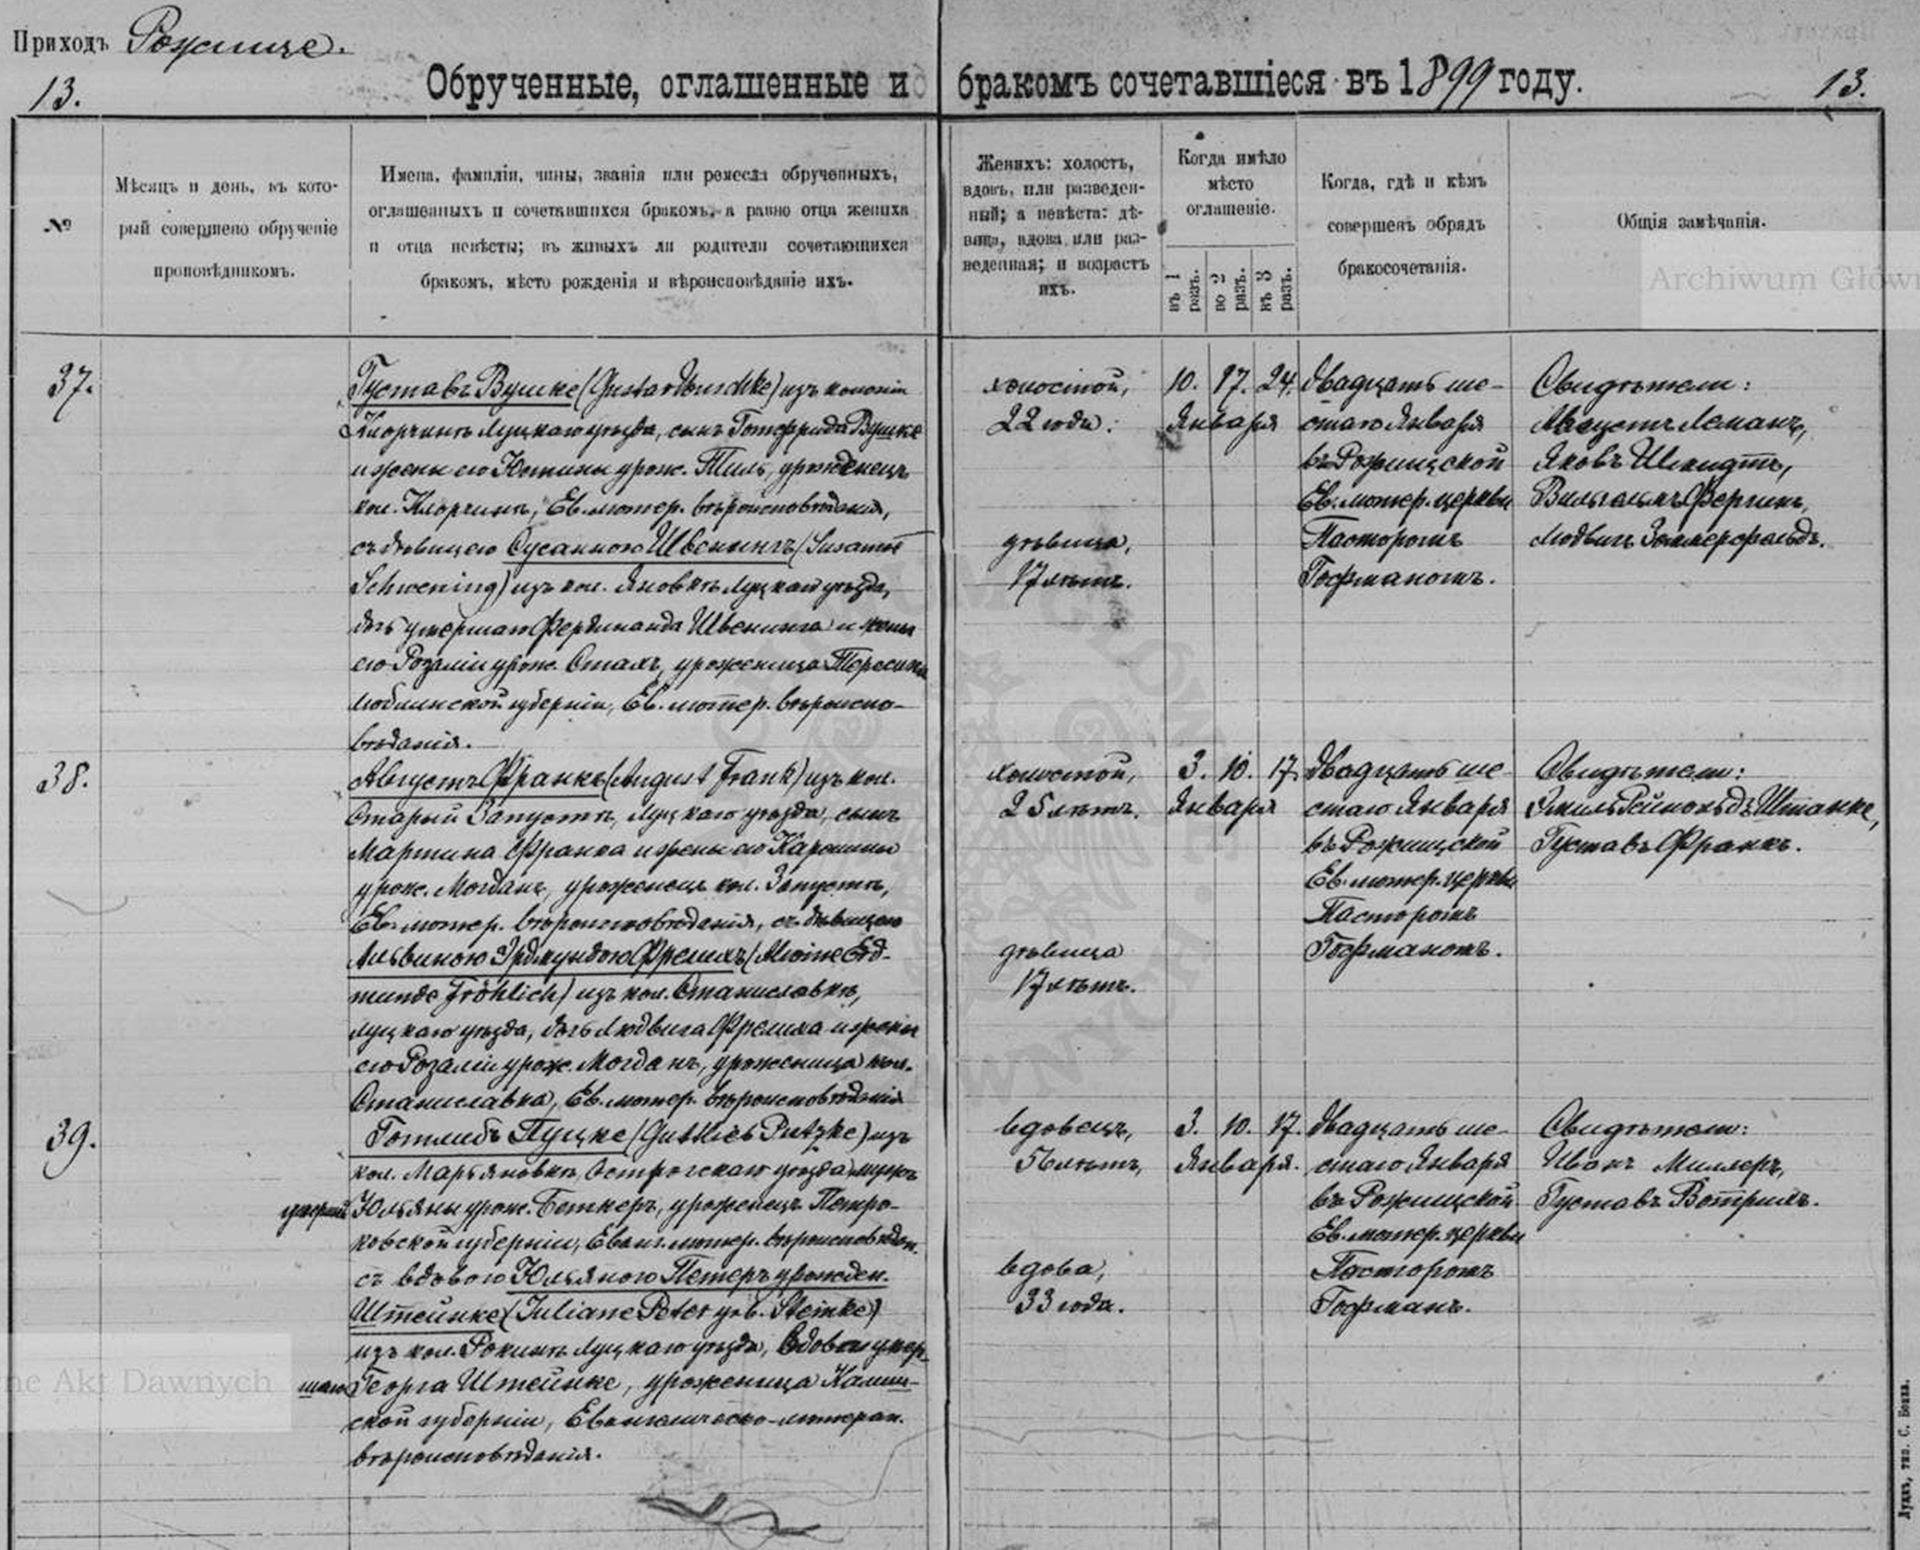 Приходъ Рожище.
13.
Обрученные, оглашенные и бракомъ сочетавшіеся въ 1899 году.
13.
№
Мѣсяцъ и день, въ кото-
рый совершено обрученіе
проповѣдникомъ.
Имена, фамиліи, чины, званія или ремесла обрученныхъ,
оглашенныхъ и сочетавшихся бракомъ, а равно отца жениха
и отца невѣсты; въ живыхъ ли родители сочетающихся
бракомъ, мѣсто рожденія и вѣроисповѣданіе ихъ.
Женихъ: холостъ,
вдовъ, или разведен-
ный; а невѣста: дѣ-
вица, вдова или раз-
веденная; и возрастъ
ихъ.
Когда имѣло
мѣсто
оглашеніе.
въ 1 разъ.
во 2 разъ.
въ 3 разъ.
Когда, гдѣ и кѣмъ
совершенъ обрядъ
бракосочетанія.
Общія замѣчанія.
Archiwum Główn
37.
Густавъ Вушке (Gustav Wuschke) изъ колоніи
Киорчинъ Луцкаго уѣзда, сынъ Готфрида Вушке
и жены его Юстины урож. Тиль, уроженецъ
кол. Клорчинъ, Ев. лютер. вѣроисповѣданія,
съ дѣвицею Сусанною Швенингъ (Susanne
Schwening) изъ кол. Яновкѣ Луцкаго уѣзда,
дочь умершаго Фердинанда Швенинга и жены
его Розаліи урож. Сталъ, уроженица
Люблинской губерніи, Ев. лютер. вѣроиспо-
вѣданія.
холостой,
22 года.
дѣвица,
17 лѣтъ.
10. 17. 24.
Января
двадцать ше-
стаго Января
въ Рожищской
Ев. лютер. церкви
Пасторомъ
Гофманомъ.
Свидѣтели:
Августъ Леманъ,
Яковъ Шмидтъ,
Вильгельмъ
Людвигъ Зоммерфельдъ.
38.
Августъ Франкъ (August Frank) изъ кол.
Старый Запустъ, Луцкаго уѣзда, сынъ
Мартина Франка и жены его Каролины
урож. Могданъ, уроженецъ кол. Запустъ,
Ев. лютер. вѣроисповѣданія, съ дѣвицею
Альвиною Эрдмундою Фрелихъ (Alwine Erd-
munde Fröhlich) изъ кол. Станиславкѣ,
Луцкаго уѣзда, дочь Людвига Фрелиха и жены
его Розаліи урож. Могданъ, уроженица кол.
Станиславка, Ев. лютер. вѣроисповѣданія
холостой,
25 лѣтъ.
дѣвица
17 лѣтъ.
3. 10. 17.
Января
двадцать ше-
стаго Января
въ Рожищской
Ев. лютер. церкви
Пасторомъ
Гофманомъ.
Свидѣтели:
Эмиль Рейнольдъ Штанке,
Густавъ Франкъ.
39.
Готлибъ Пуцке (Gottlieb Putzke) изъ
кол. Марьяновкѣ, Острогскаго уѣзда, мужъ
умершей Юльяны урож. Беткеръ, уроженецъ Петро-
ковской губерніи, Еванг. лютер. вѣроисповѣдан.
съ вдовою Юльяною Петеръ урожден.
Штейнке (Juliane Peter geb. Steinke)
изъ кол. Рокинъ Луцкаго уѣзда, вдова умер-
шаго Георга Штейнке, уроженица Калиш-
ской губерніи, Евангелическо-лютеран.
вѣроисповѣданія.
вдовецъ,
56 лѣтъ,
вдова,
33 года.
3. 10. 17.
Января.
двадцать ше-
стаго Января
въ Рожищской
Ев. лютер. церкви
Пасторомъ
Гофманъ.
Свидѣтели:
Иванъ Миллеръ,
Густавъ Ботрихъ.
ne Akt Dawnych
Луцкъ, тип. С. Бонка.